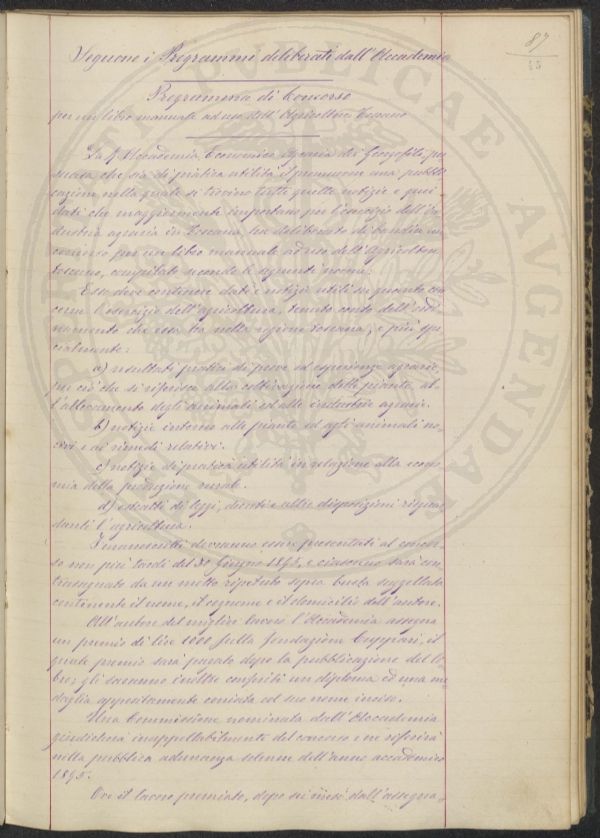 87
15
Seguono i Programmi deliberati dall'Accademia
Programma di Concorso
per un libro manuale ad uso dell'Agricoltore Toscano
La R. Accademia Economico Agraria dei Georgofili, per
suasa che sia di pratica utilità il promuovere una pubbli
cazione nella quale si trovino tutte quelle notizie e quei
dati che maggiormente importano per l'esercizio dell'in
dustria agraria in Toscana, ha deliberato di bandire un
concorso per un libro manuale ad uso dell'Agricoltore
toscano, compilato secondo le seguenti norme:
Esso deve contenere dati e notizie utili in quanto con
cerne l'esercizio dell'agricoltura, tenuto conto dell'ordi
namento che essa ha nella regione toscana, e più spe
cialmente:
a) resultati pratici di prove ed esperienze agrarie,
per ciò che si riferisce alla coltivazione delle piante, al
l'allevamento degli animali ed alle industrie agrarie.
b) notizie intorno alle piante ed agli animali no
civi e ai rimedi relativi.
c) notizie di pratica utilità in relazione alla econo
mia della produzione rurale.
d) estratti di leggi, decreti e altre disposizioni riguar
danti l'agricoltura.
I manoscritti dovranno essere presentati al concor
so non più tardi del 30 Giugno e ciascuno sarà con
trassegnato da un motto ripetuto sopra busta suggellata
contenente il nome, il cognome e il domicilio dell'autore.
All'autore del miglior lavoro l'Accademia assegna
un premio di lire 1000 sulla fondazione Cuppari, il
quale premio sarà pagato dopo la pubblicazione del li
bro; gli saranno inoltre conferiti un diploma ed una me
daglia appositamente coniata col suo nome inciso.
Una Commissione nominata dall'Accademia
giudicherà inappellabilmente del concorso e ne riferirà
nella pubblica adunanza solenne dell'anno accademico
1895.
Ove il lavoro premiato, dopo sei mesi dall'assegna-
SPRETI PUBLICAE AVGENDAE